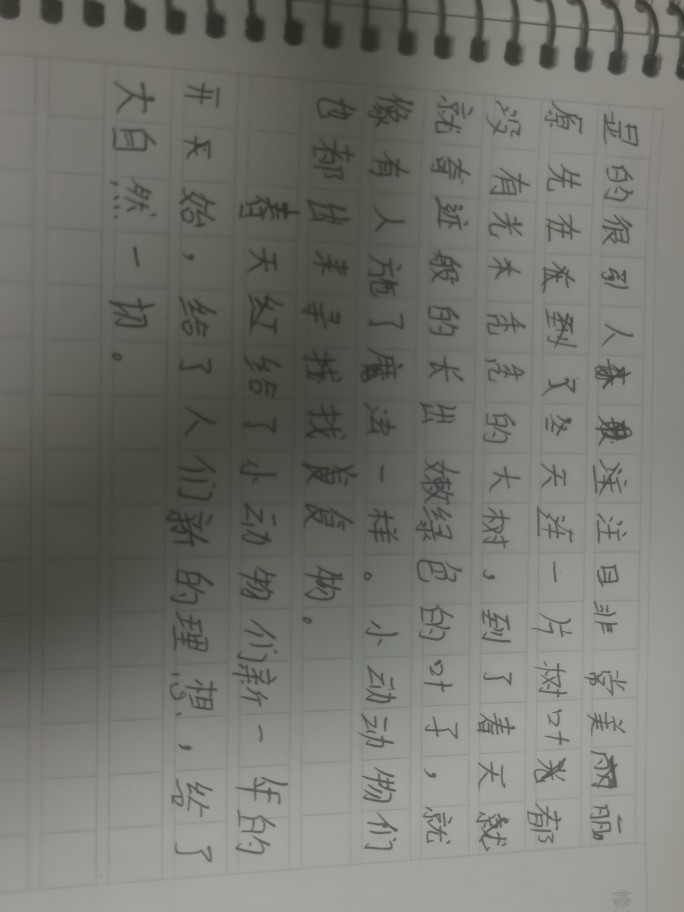 是的很引人注目非常美丽。
原先在到了冬天连一片树叶都
没有光秃秃的大树，到了春天就
就奇迹般的长出嫩绿色的叶子，就
像有人施了魔法一样。小动动物们
也都出来寻找找食物。
春天给了小动物们新一年的
开始，给了人们新的理想，给了
大自然一切。
修